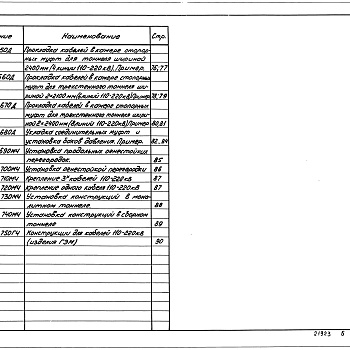 ние Наименование Стр.
50Д Прокладка кабелей в камере стопор-
ных муфт для тоннеля шириной
2400мм (4 линии 110-220кВ). Пример. 76,77
560Д Прокладка кабелей в камере стопорных
муфт для трехстенного тоннеля ши-
риной 2×2100мм (8 линий 110-220кВ) Пример 78,79
570Д Прокладка кабелей в камере стопорных
муфт для трехстенного тоннеля шири-
ной 2×2400мм (8 линий 110-220кВ) Пример 80,81
680Д Укладка соединительных муфт и
установка баков давления. Пример. 82, 84
690МЧ Установка продольных огнестойких
перегородок. 85
700МЧ Установка огнестойкой перегородки 86
710МЧ Крепление 3х кабелей 110-220кВ 87
720МЧ Крепление одного кабеля 110-220кВ 87
730МЧ Установка конструкций в моно-
литном тоннеле. 88
740МЧ Установка конструкций в сборном
тоннеле 89
750ГЧ Конструкции для кабелей 110-220кВ
(изделия ГЭМ) 90
21923 6